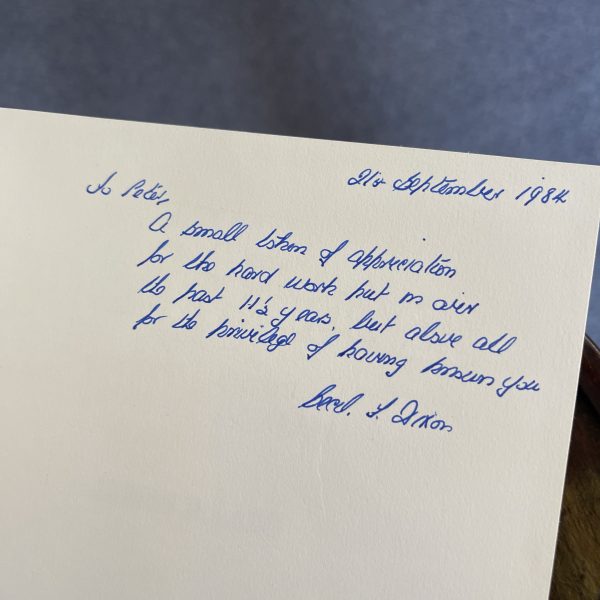 21st September 1984
To Peter,
A small token of appreciation
for the hard work put in over
the past 11½ years, but above all
for the privilege of having known you
Cecil. F. Dixon